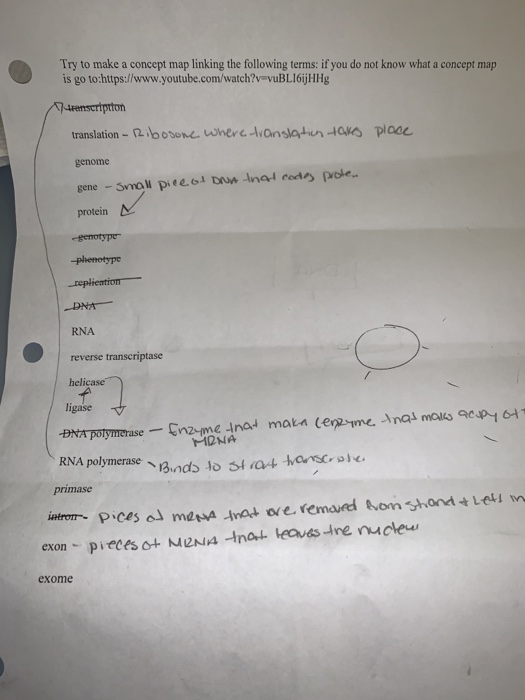 Try to make a concept map linking the following terms: if you do not know what a concept map
is go to:https://www.youtube.com/watch?v=vuBLI6ijHHg
transcription
translation - Ribosome where translation takes place
genome
gene - small piece of DNA that codes protein
protein
genotype
phenotype
replication
DNA
RNA
reverse transcriptase
helicase
ligase
DNA polymerase - Enzyme that makn (enzyme that makes a copy of
MRNA
RNA polymerase - Binds to start
primase
intron - pices of mRNA that are removed from strand + Left in
exon - pieces of MRNA that leaves the
exome